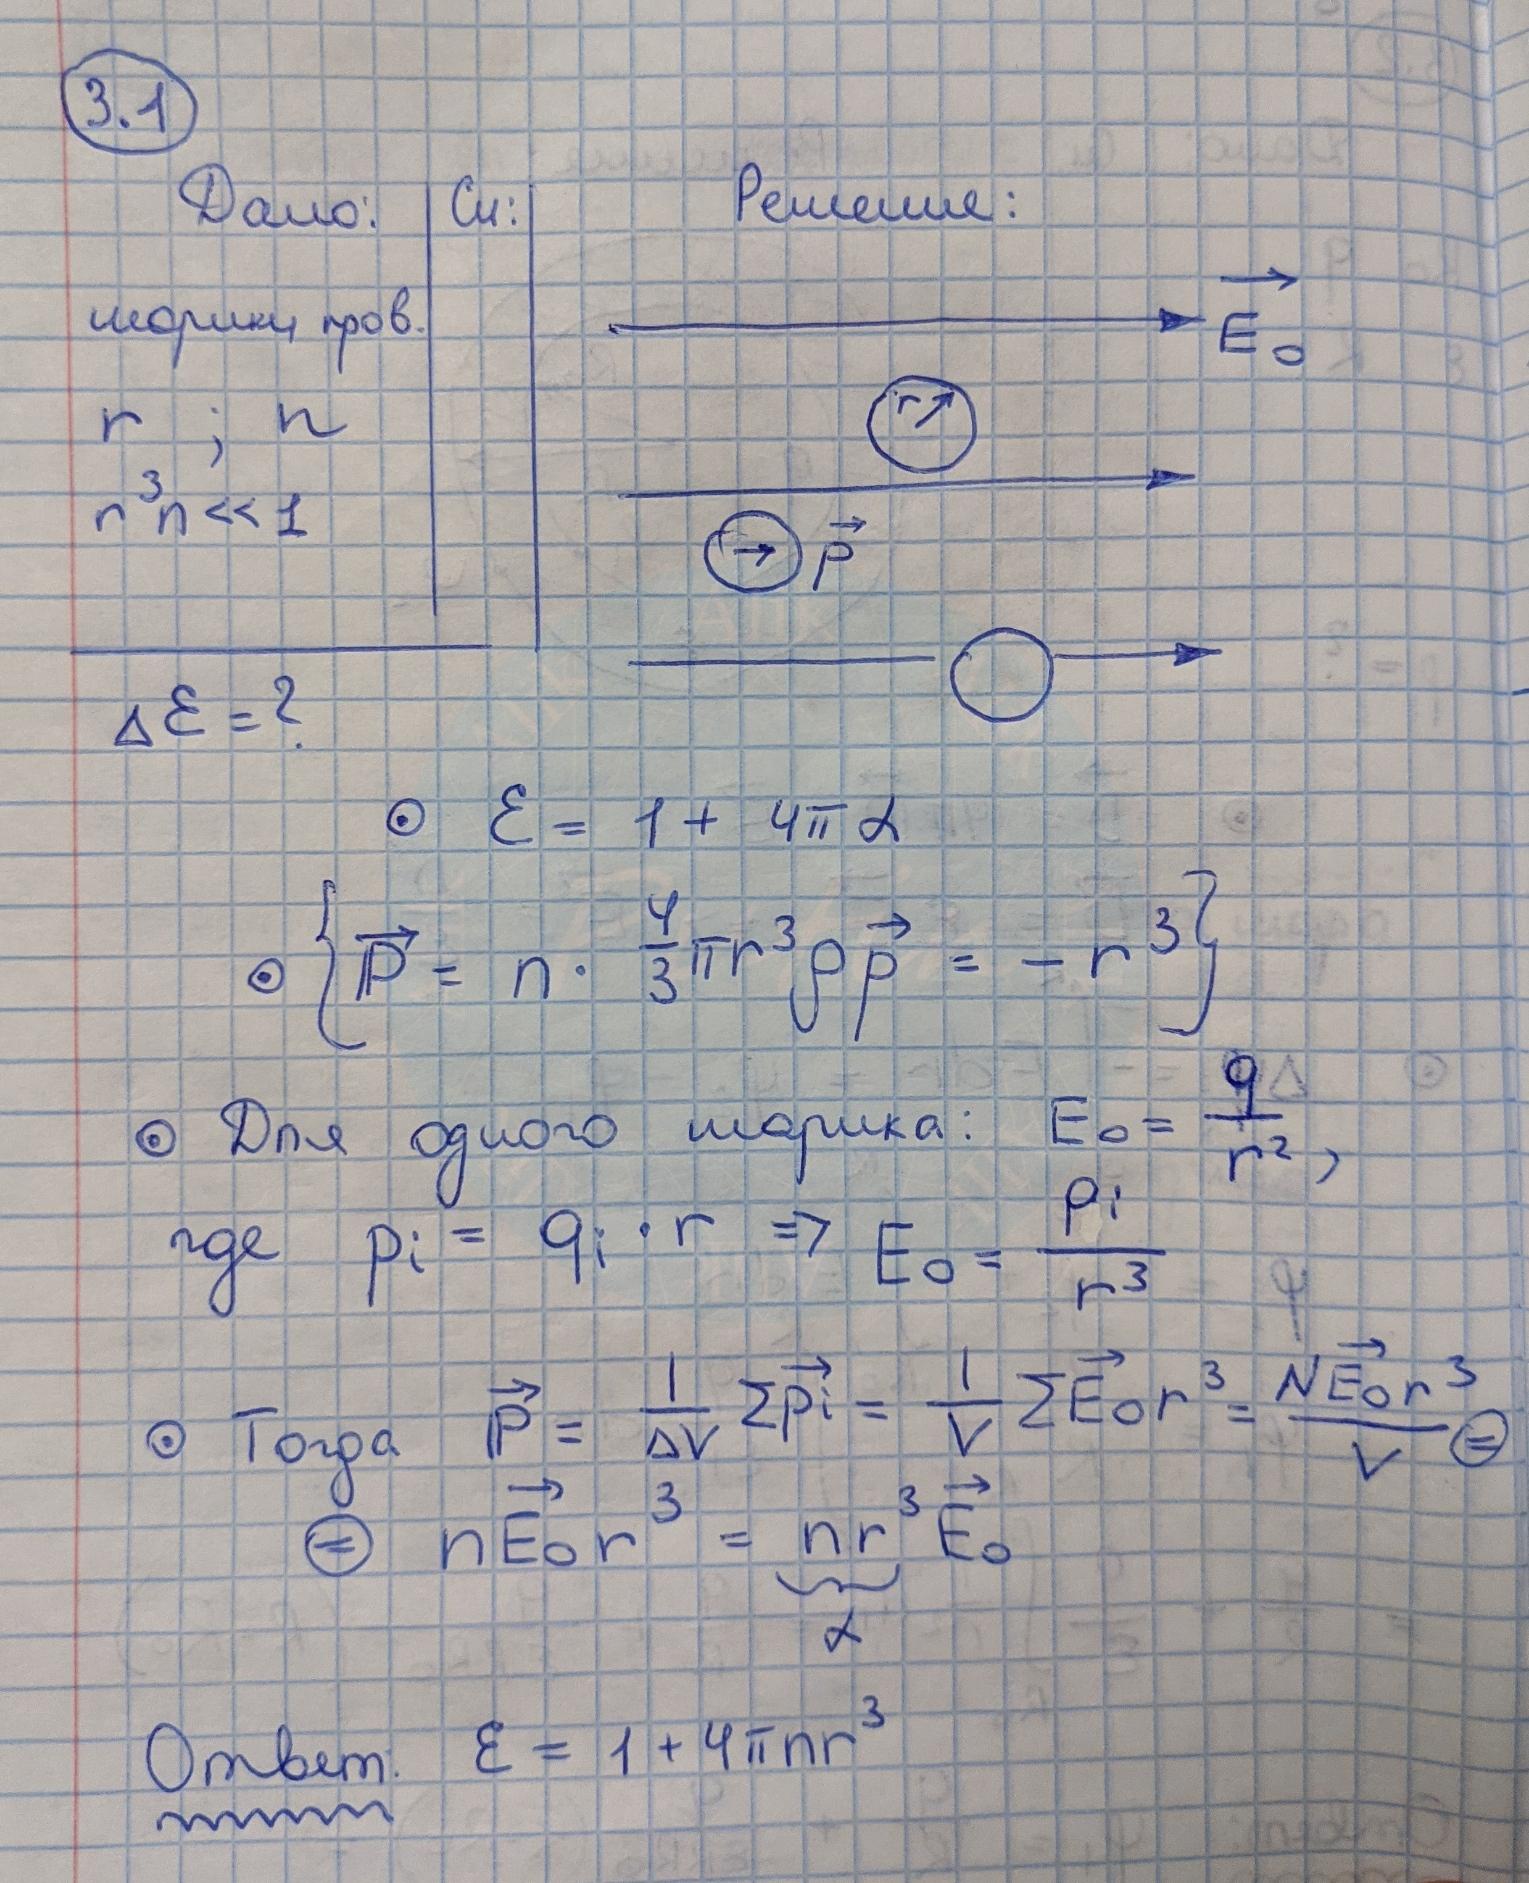 3.1
Дано: Си: Решение:
шарики пров.
r ; n
r³n << 1
Δε = ?
E⃗₀
r
p⃗
⊙ ε = 1 + 4πα
⊙ { P⃗ = n · 4/3 πr³ρp⃗ = - r³ }
⊙ Для одного шарика: E₀ = q/r²,
где pᵢ = qᵢ · r => E₀ = pᵢ/r³
⊙ Тогда P⃗ = 1/ΔV Σp⃗ᵢ = 1/V ΣE⃗₀r³ = NE⃗₀r³/V ⊜
⊜ nE⃗₀r³ = nr³E⃗₀
α
Ответ. ε = 1 + 4πnr³